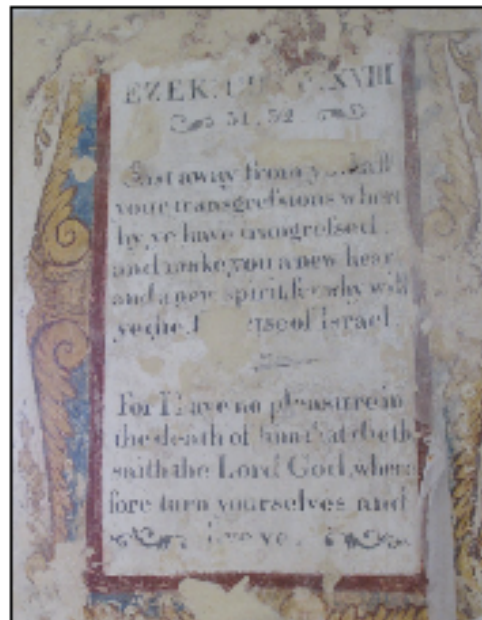 EZEK. XVIII
31. 32.
Cast away from you all
your transgreſsions where
by ye have transgreſsed.
and make you a new hear
and a new spirit, for why will
ye die. of israel.
For I have no pleasure in
the death of him that dieth
saith the Lord God, where
fore turn yourselves and
ye.